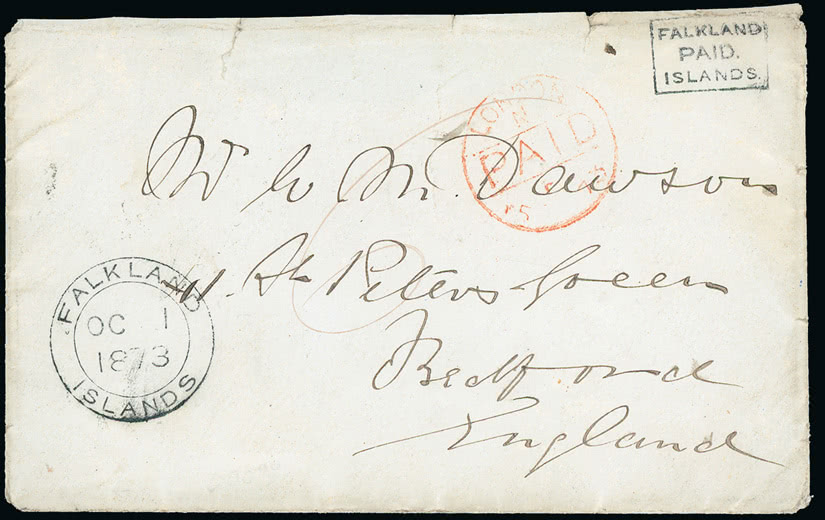 FALKLAND
PAID.
ISLANDS.
LONDON
N
PAID
15
Mr W M. Dawson
11. St Peters Green
Bedford
England
FALKLAND
OC 1
1873
ISLANDS